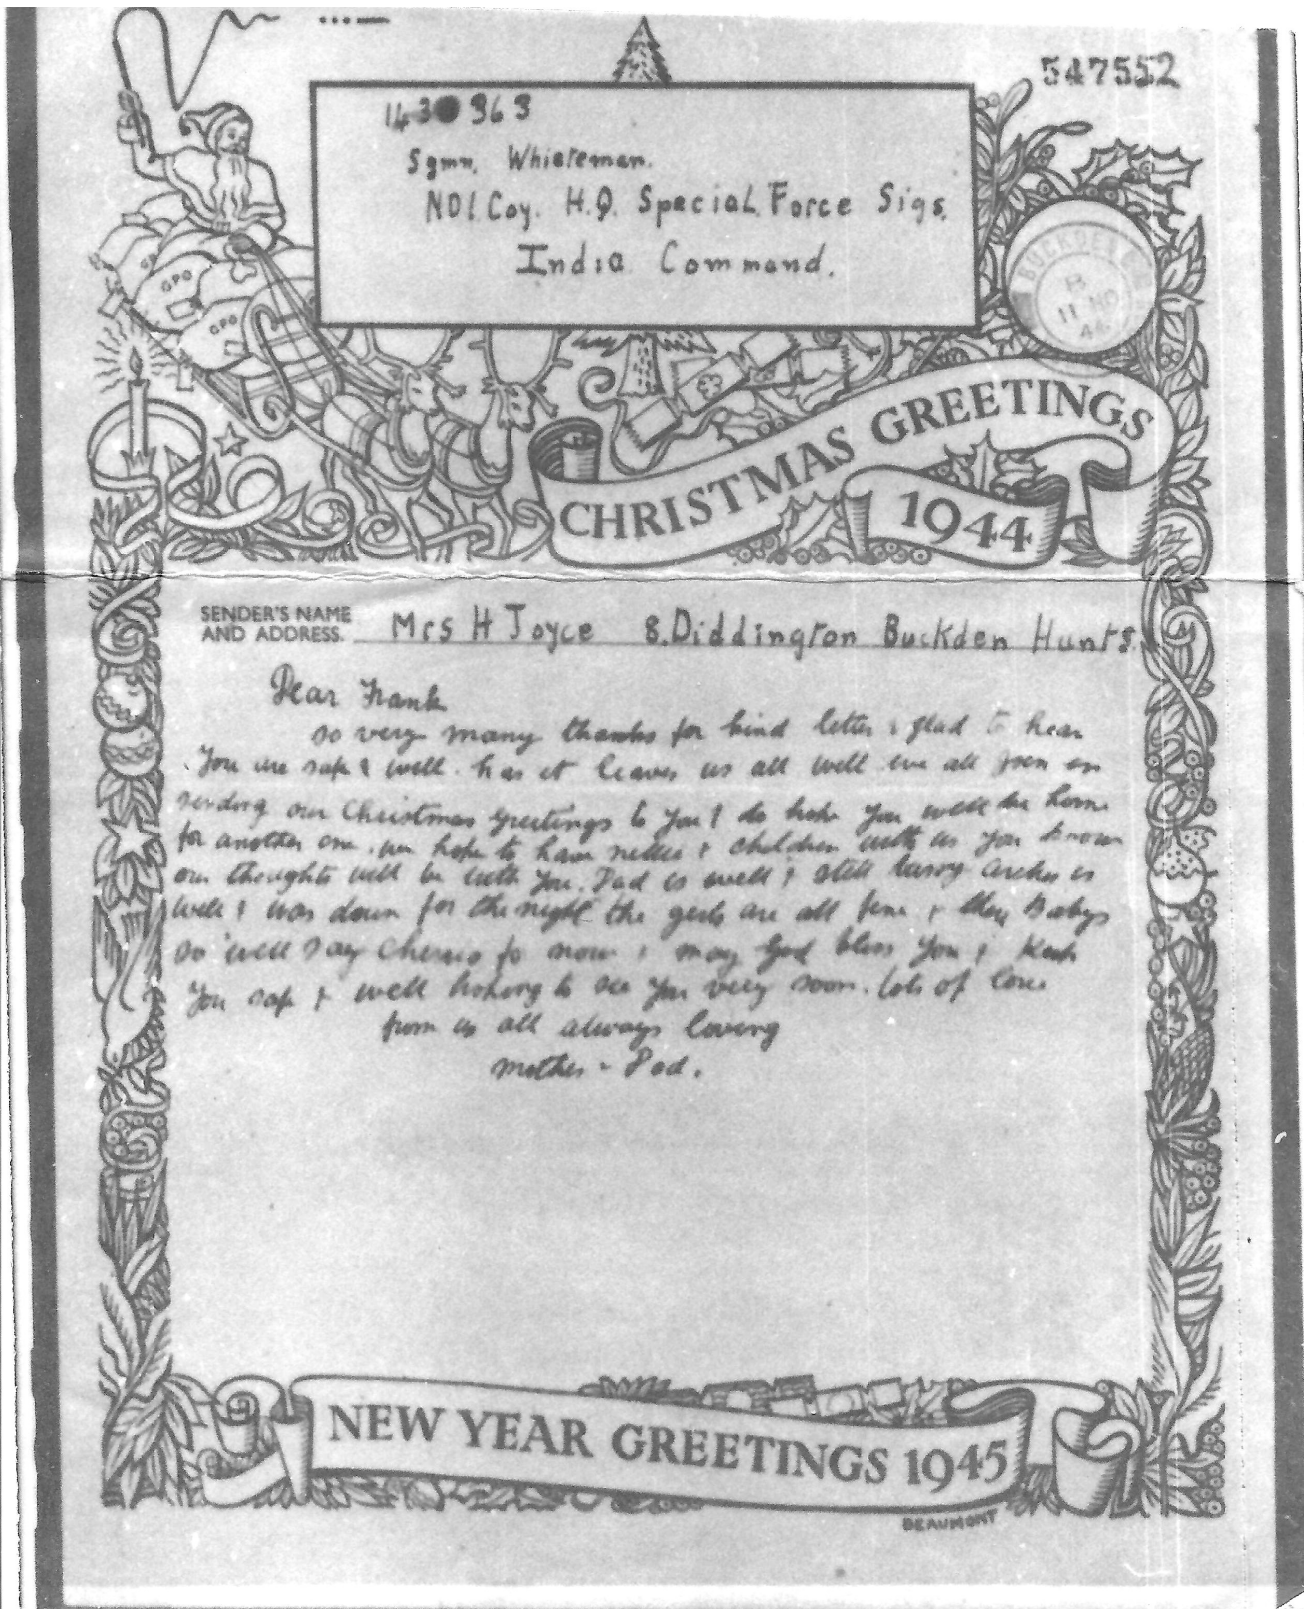 547552
Sgmn. Whiteman.
NO1 Coy. H.Q. Special Force Sigs.
India Command.
GPO
GPO
BUCKDEN
B
11 NO
44
CHRISTMAS GREETINGS
1944
SENDER'S NAME
AND ADDRESS. Mrs H Joyce 8. Diddington Buckden Hunts.
Dear Frank
so very many thanks for kind letter & glad to hear
you are safe & well. has it leaves us all well we all join in
sending our Christmas greetings to you I do hope you will be home
for another one. we hope to have nellie & children with us you know
our thoughts will be with you. Dad is well & still busy is
well & was down for the night the girls are all fine & Babys
so well say cherio fo now & may God bless you & Keep
you safe & well hoping to see you very soon. lots of love
from us all always loving
mother - Dad.
NEW YEAR GREETINGS 1945
BEAUMONT